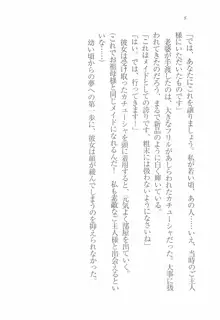 8
「では、あなたにこれを譲りましょう。私が若い頃、あの人……いえ、当時のご主人
様にいただいたものです」
老婆が差し出したのは、大きなフリルがあしらわれたカチューシャだった。大事に扱
われてきたのだろう、まるで新品のように白く輝いている。
「これはメイドとしての誇りです。粗末には扱わないようになさいね」
「はい。では、行ってきます！」
彼女は受け取ったカチューシャを頭に着用すると、元気よく部屋を出ていった。
（これでお祖母様と同じメイドになれるんだ……私も素敵なご主人様と出会えるといいなぁ）
幼い頃からの夢への第一歩に、彼女は顔が緩んでしまうのを抑えられなかった。